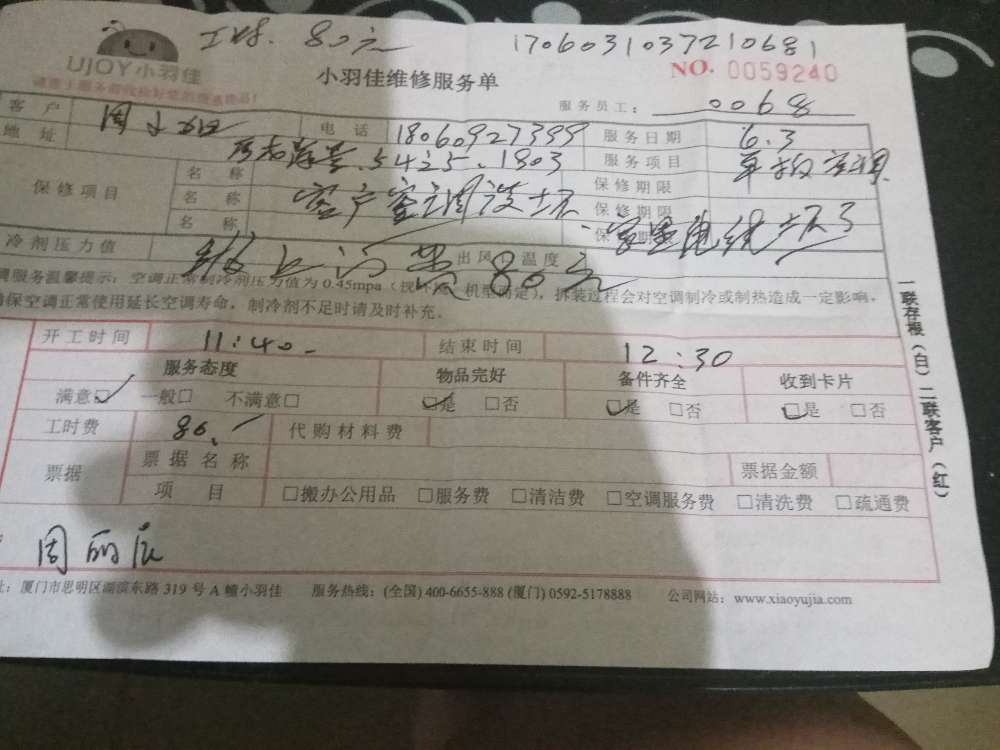 工时. 80元 1706031037210681
UJOY小羽佳
小羽佳维修服务单 NO. 0059240
服务员工: 0068
客户 周 电话 18060927399 服务日期 6.3
地址 5425.1803 服务项目 单拆空调
保修项目 名称 保修期限
名称 客户室 保修期限
名称 保
冷剂压力值 出风 温度 80元
调服务温馨提示: 空调正常制冷剂压力值为 0.45mpa (视 机型而定), 拆装过程会对空调制冷或制热造成一定影响,
确保空调正常使用延长空调寿命, 制冷剂不足时请及时补充。
开工时间 11:40 结束时间 12:30
服务态度 物品完好 备件齐全 收到卡片
满意☑ 一般□ 不满意□ ☑是 □否 ☑是 □否 ☑是 □否
工时费 80. 代购材料费
票据 票据名称 票据金额
项目 □搬办公用品 □服务费 □清洁费 □空调服务费 □清洗费 □疏通费
周丽
址: 厦门市思明区湖滨东路 319 号 A 幢小羽佳 服务热线: (全国) 400-6655-888 (厦门) 0592-5178888 公司网站: www.xiaoyujia.com
一联存根(白) 二联客户(红)